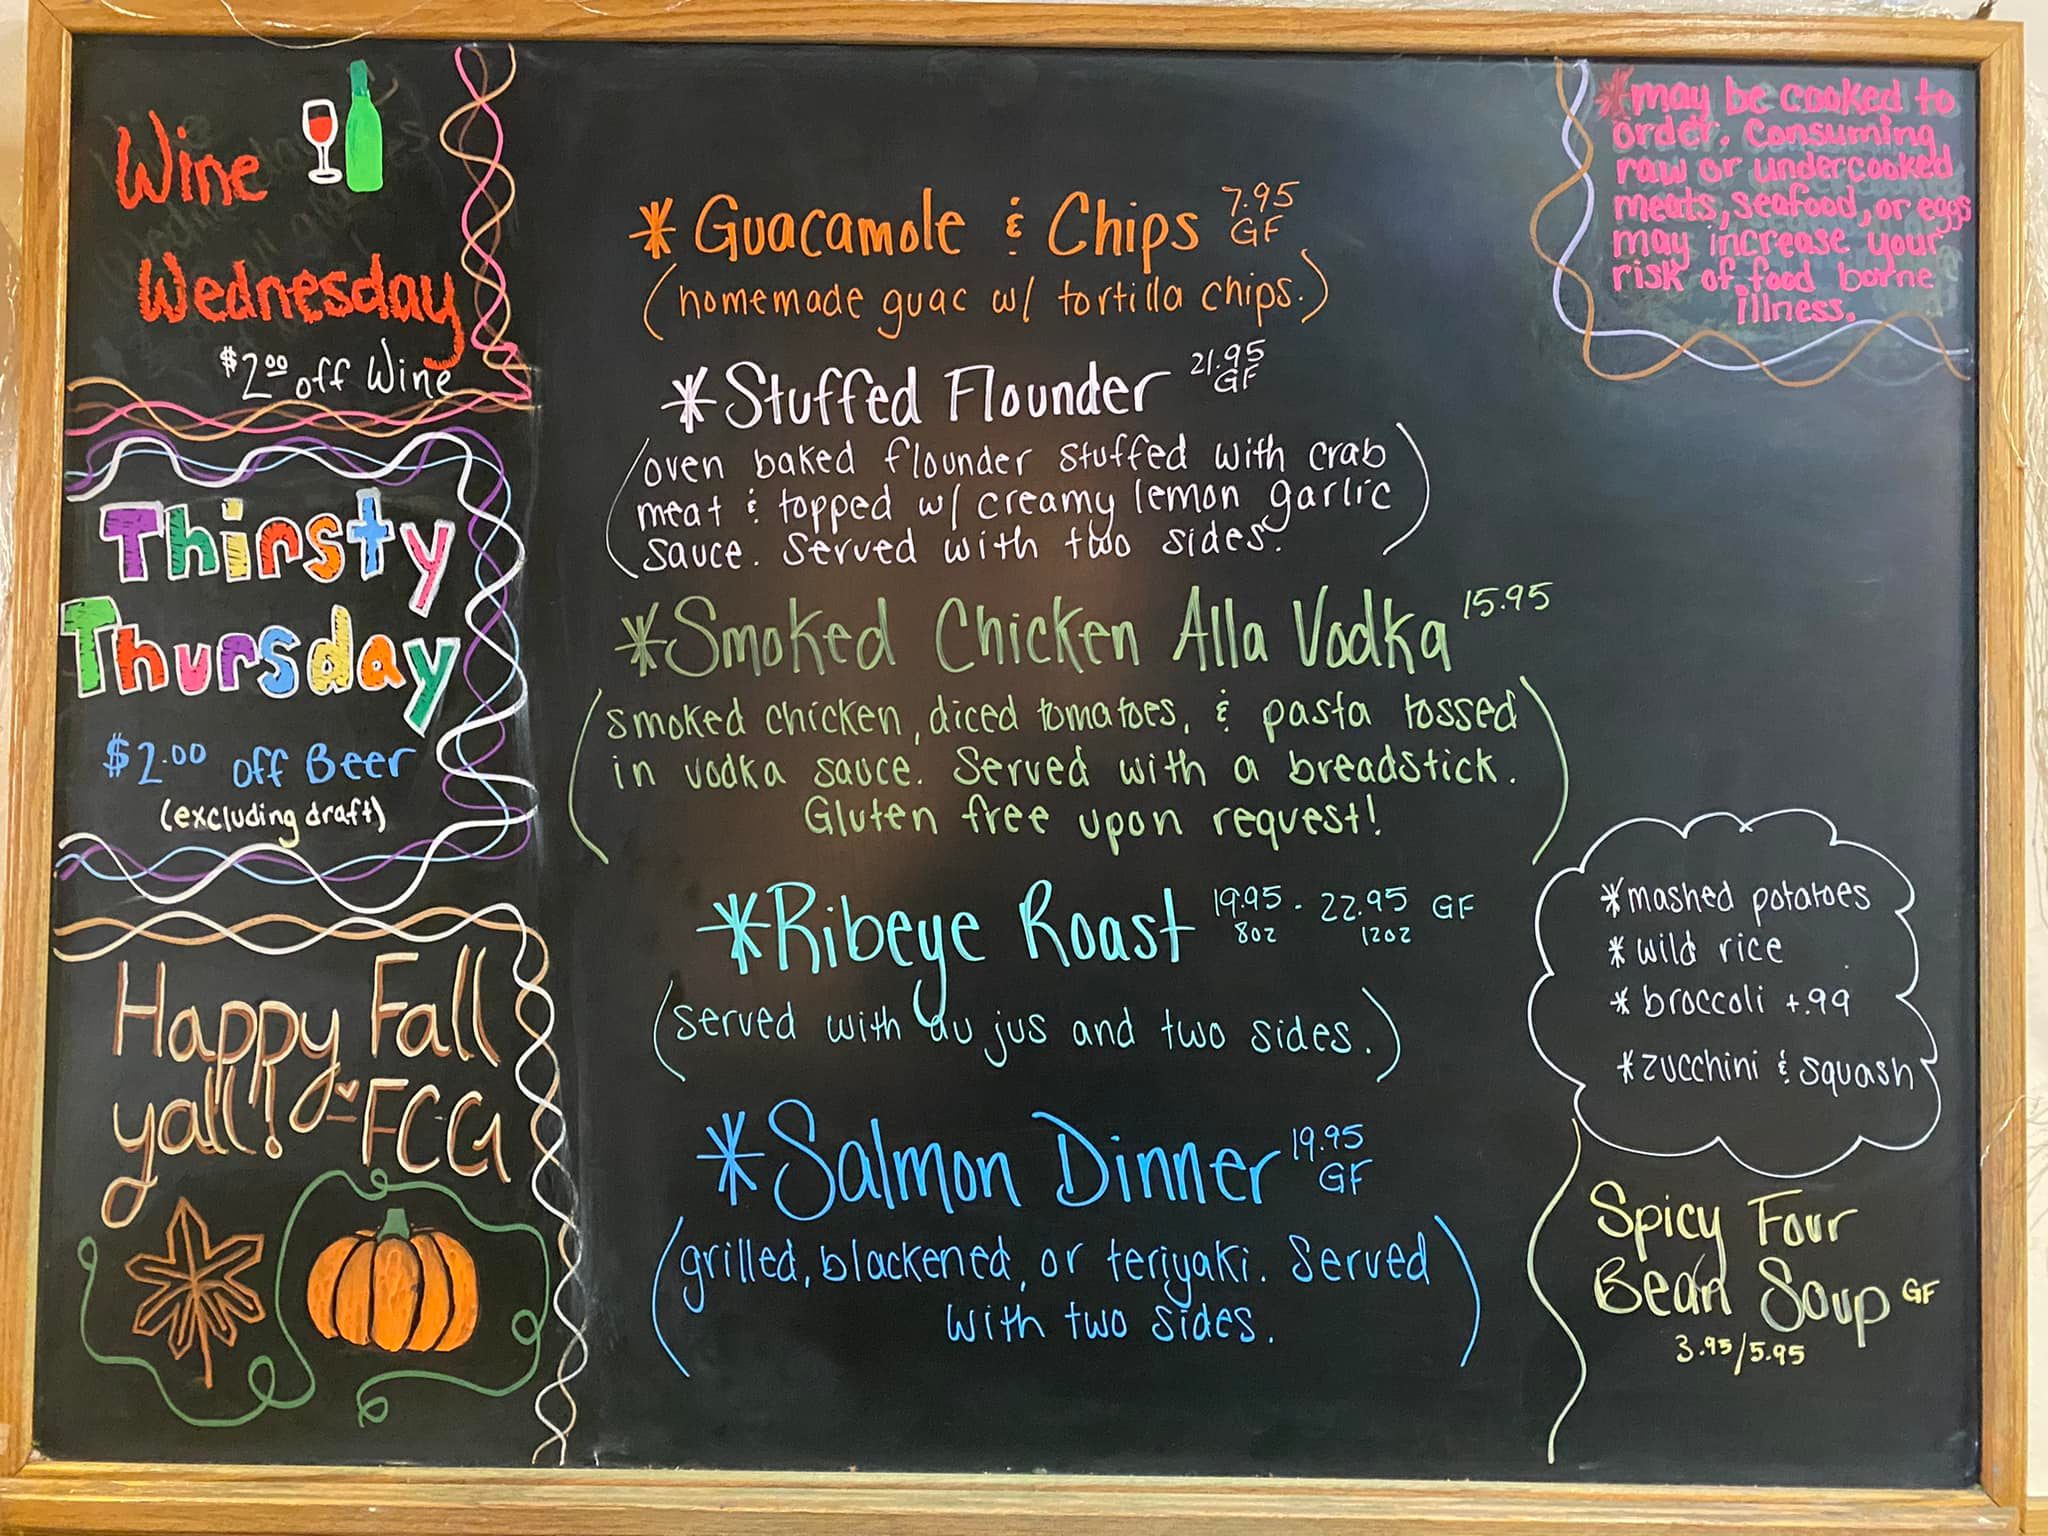 Wine
Wednesday
$2.00 off Wine
Thirsty
Thursday
$2.00 off Beer
(excluding draft)
Happy Fall
yall! -FCG
*Guacamole & Chips 7.95
GF
(homemade guac w/ tortilla chips.)
*Stuffed Flounder 21.95
GF
(oven baked flounder stuffed with crab
meat & topped w/ creamy lemon garlic
sauce. Served with two sides.)
*Smoked Chicken Alla Vodka 15.95
(smoked chicken, diced tomatoes, & pasta tossed
in vodka sauce. Served with a breadstick.
Gluten free upon request!)
*Ribeye Roast 19.95 - 22.95 GF
8oz 12oz
(served with au jus and two sides.)
*Salmon Dinner 19.95
GF
(grilled, blackened, or teriyaki. Served
with two sides.)
*may be cooked to
order. Consuming
raw or undercooked
meats, seafood, or eggs
may increase your
risk of food borne
illness.
*mashed potatoes
*wild rice
*broccoli +.99
*zucchini & squash
Spicy Four
Bean Soup GF
3.95/5.95